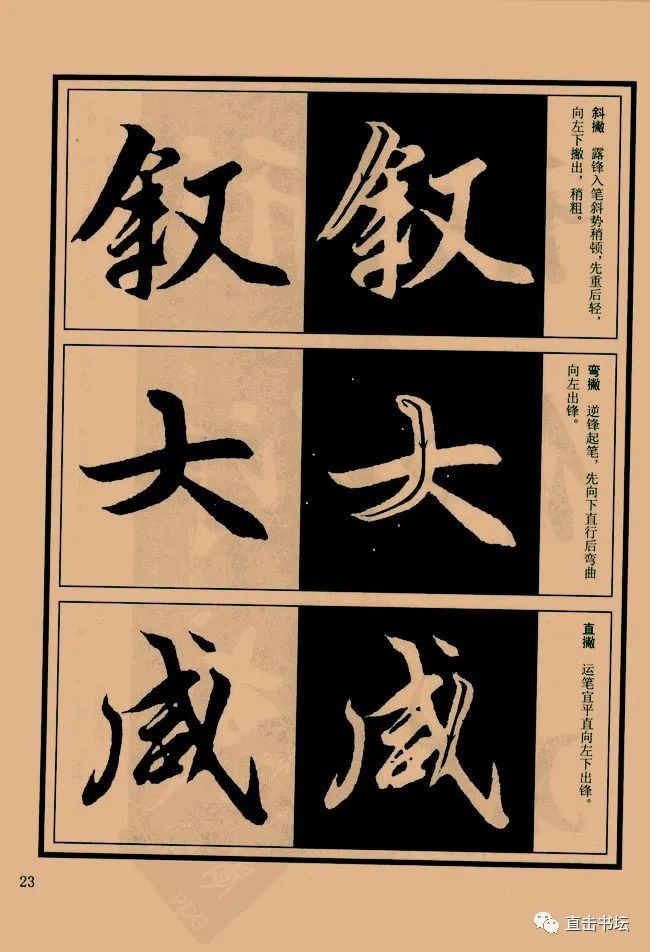 斜撇 露锋入笔斜势稍顿，先重后轻，
向左下撇出，稍粗。
叙
叙
弯撇 逆锋起笔，先向下直行后弯曲
向左出锋。
大
大
直撇 运笔宜平直向左下出锋。
咸
咸
23
直击书坛